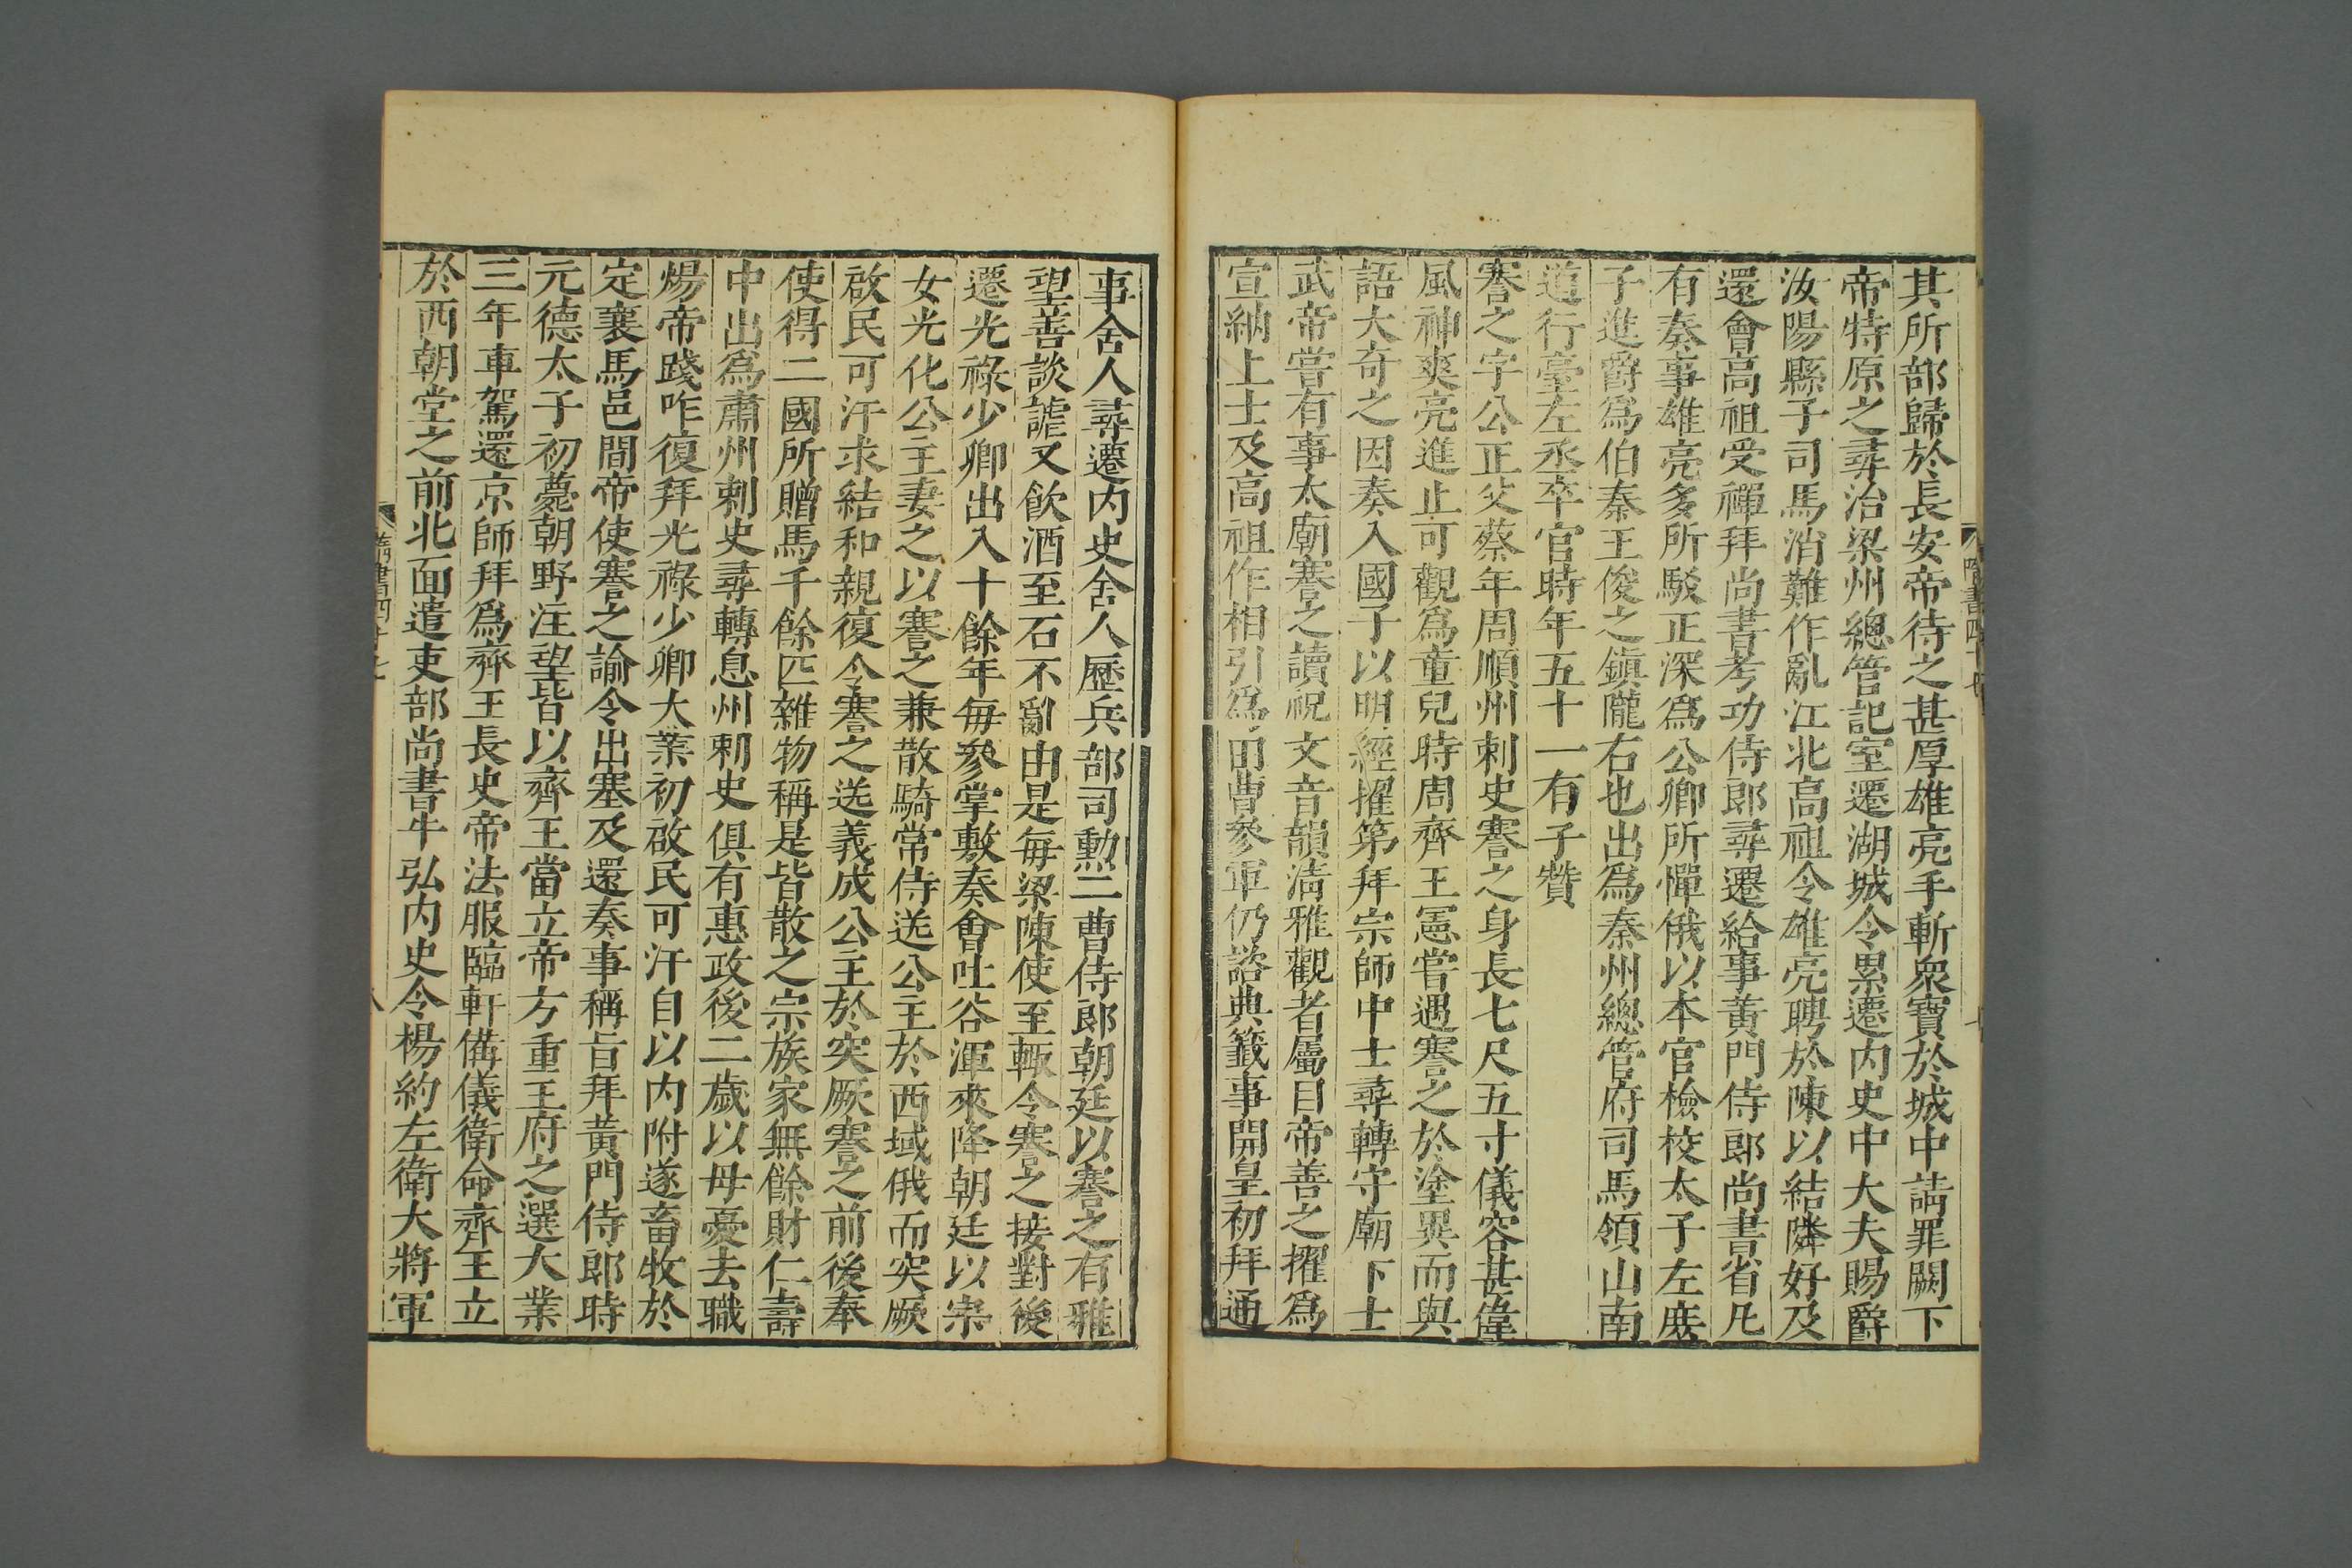 其所部歸於長安帝待之甚厚雄亮手斬衆寶於城中請罪闕下
帝特原之尋治梁州總管記室遷湖城令累遷内史中大夫賜爵
汝陽縣子司馬消難作亂江北高祖令雄亮聘於陳以結隣好及
還會高祖受禪拜尚書考功侍郎尋遷給事黃門侍郎尚書省凡
有奏事雄亮多所駁正深爲公卿所憚俄以本官檢校太子左庶
子進爵爲伯秦王俊之鎭隴右也出爲秦州總管府司馬領山南
道行臺左丞卒官時年五十一有子贊
謇之字公正父蔡年周順州刺史謇之身長七尺五寸儀容甚偉
風神爽亮進止可觀爲童兒時周齊王憲嘗遇謇之於塗異而與
語大奇之因奏入國子以明經擢第拜宗師中士尋轉守廟下士
武帝嘗有事太廟謇之讀祝文音韻清雅觀者屬目帝善之擢爲
宣納上士及高祖作相引爲田曹參軍仍諮典籖事開皇初拜通
事舍人尋遷内史舍人歷兵部司勳二曹侍郎朝廷以謇之有雅
望善談謔又飲酒至石不亂由是每梁陳使至輒令謇之接對後
遷光祿少卿出入十餘年每參掌敷奏會吐谷渾來降朝廷以宗
女光化公主妻之以謇之兼散騎常侍送公主於西域俄而突厥
啟民可汗求結和親復令謇之送義成公主於突厥謇之前後奉
使得二國所贈馬千餘匹雜物稱是皆散之宗族家無餘財仁壽
中出爲肅州刺史尋轉息州刺史俱有惠政後二歲以母憂去職
煬帝踐咋復拜光祿少卿大業初啟民可汗自以内附遂畜牧於
定襄馬邑間帝使謇之諭令出塞及還奏事稱旨拜黃門侍郎時
元德太子初薨朝野注望皆以齊王當立帝方重王府之選大業
三年車駕還京師拜爲齊王長史帝法服臨軒備儀衛命齊王立
於西朝堂之前北面遣吏部尚書牛弘内史令楊約左衛大將軍
隋書四十七
八